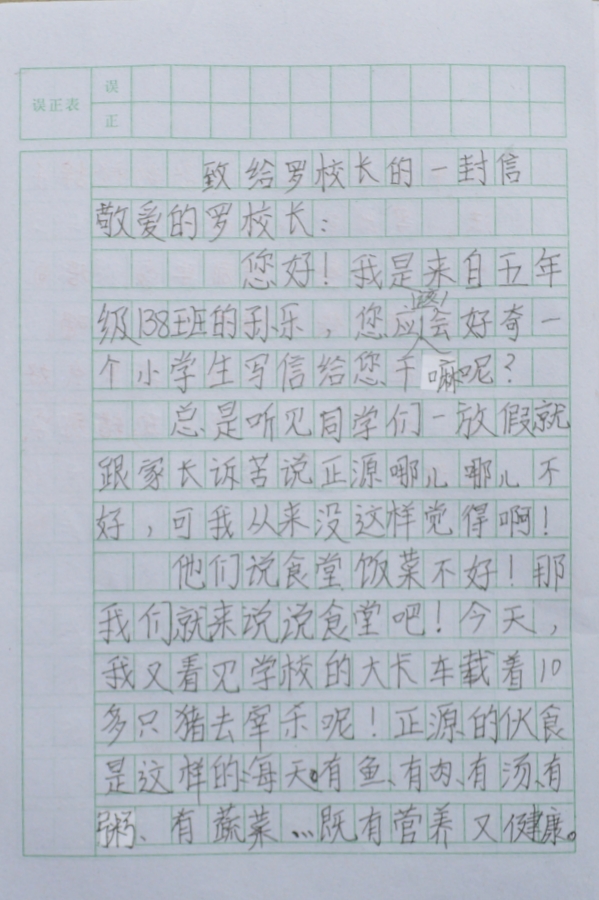 误正表
误
正
致给罗校长的一封信
敬爱的罗校长:
您好!我是来自五年
级138班的孙乐,您应该会好奇一
个小学生写信给您干嘛呢?
总是听见同学们一放假就
跟家长诉苦说正源哪儿哪儿不
好,可我从来没这样觉得啊!
他们说食堂饭菜不好!那
我们就来说说食堂吧!今天,
我又看见学校的大卡车载着10
多只猪去宰杀呢!正源的伙食
是这样的:每天有鱼、有肉、有汤、有
粥、有蔬菜...既有营养又健康。